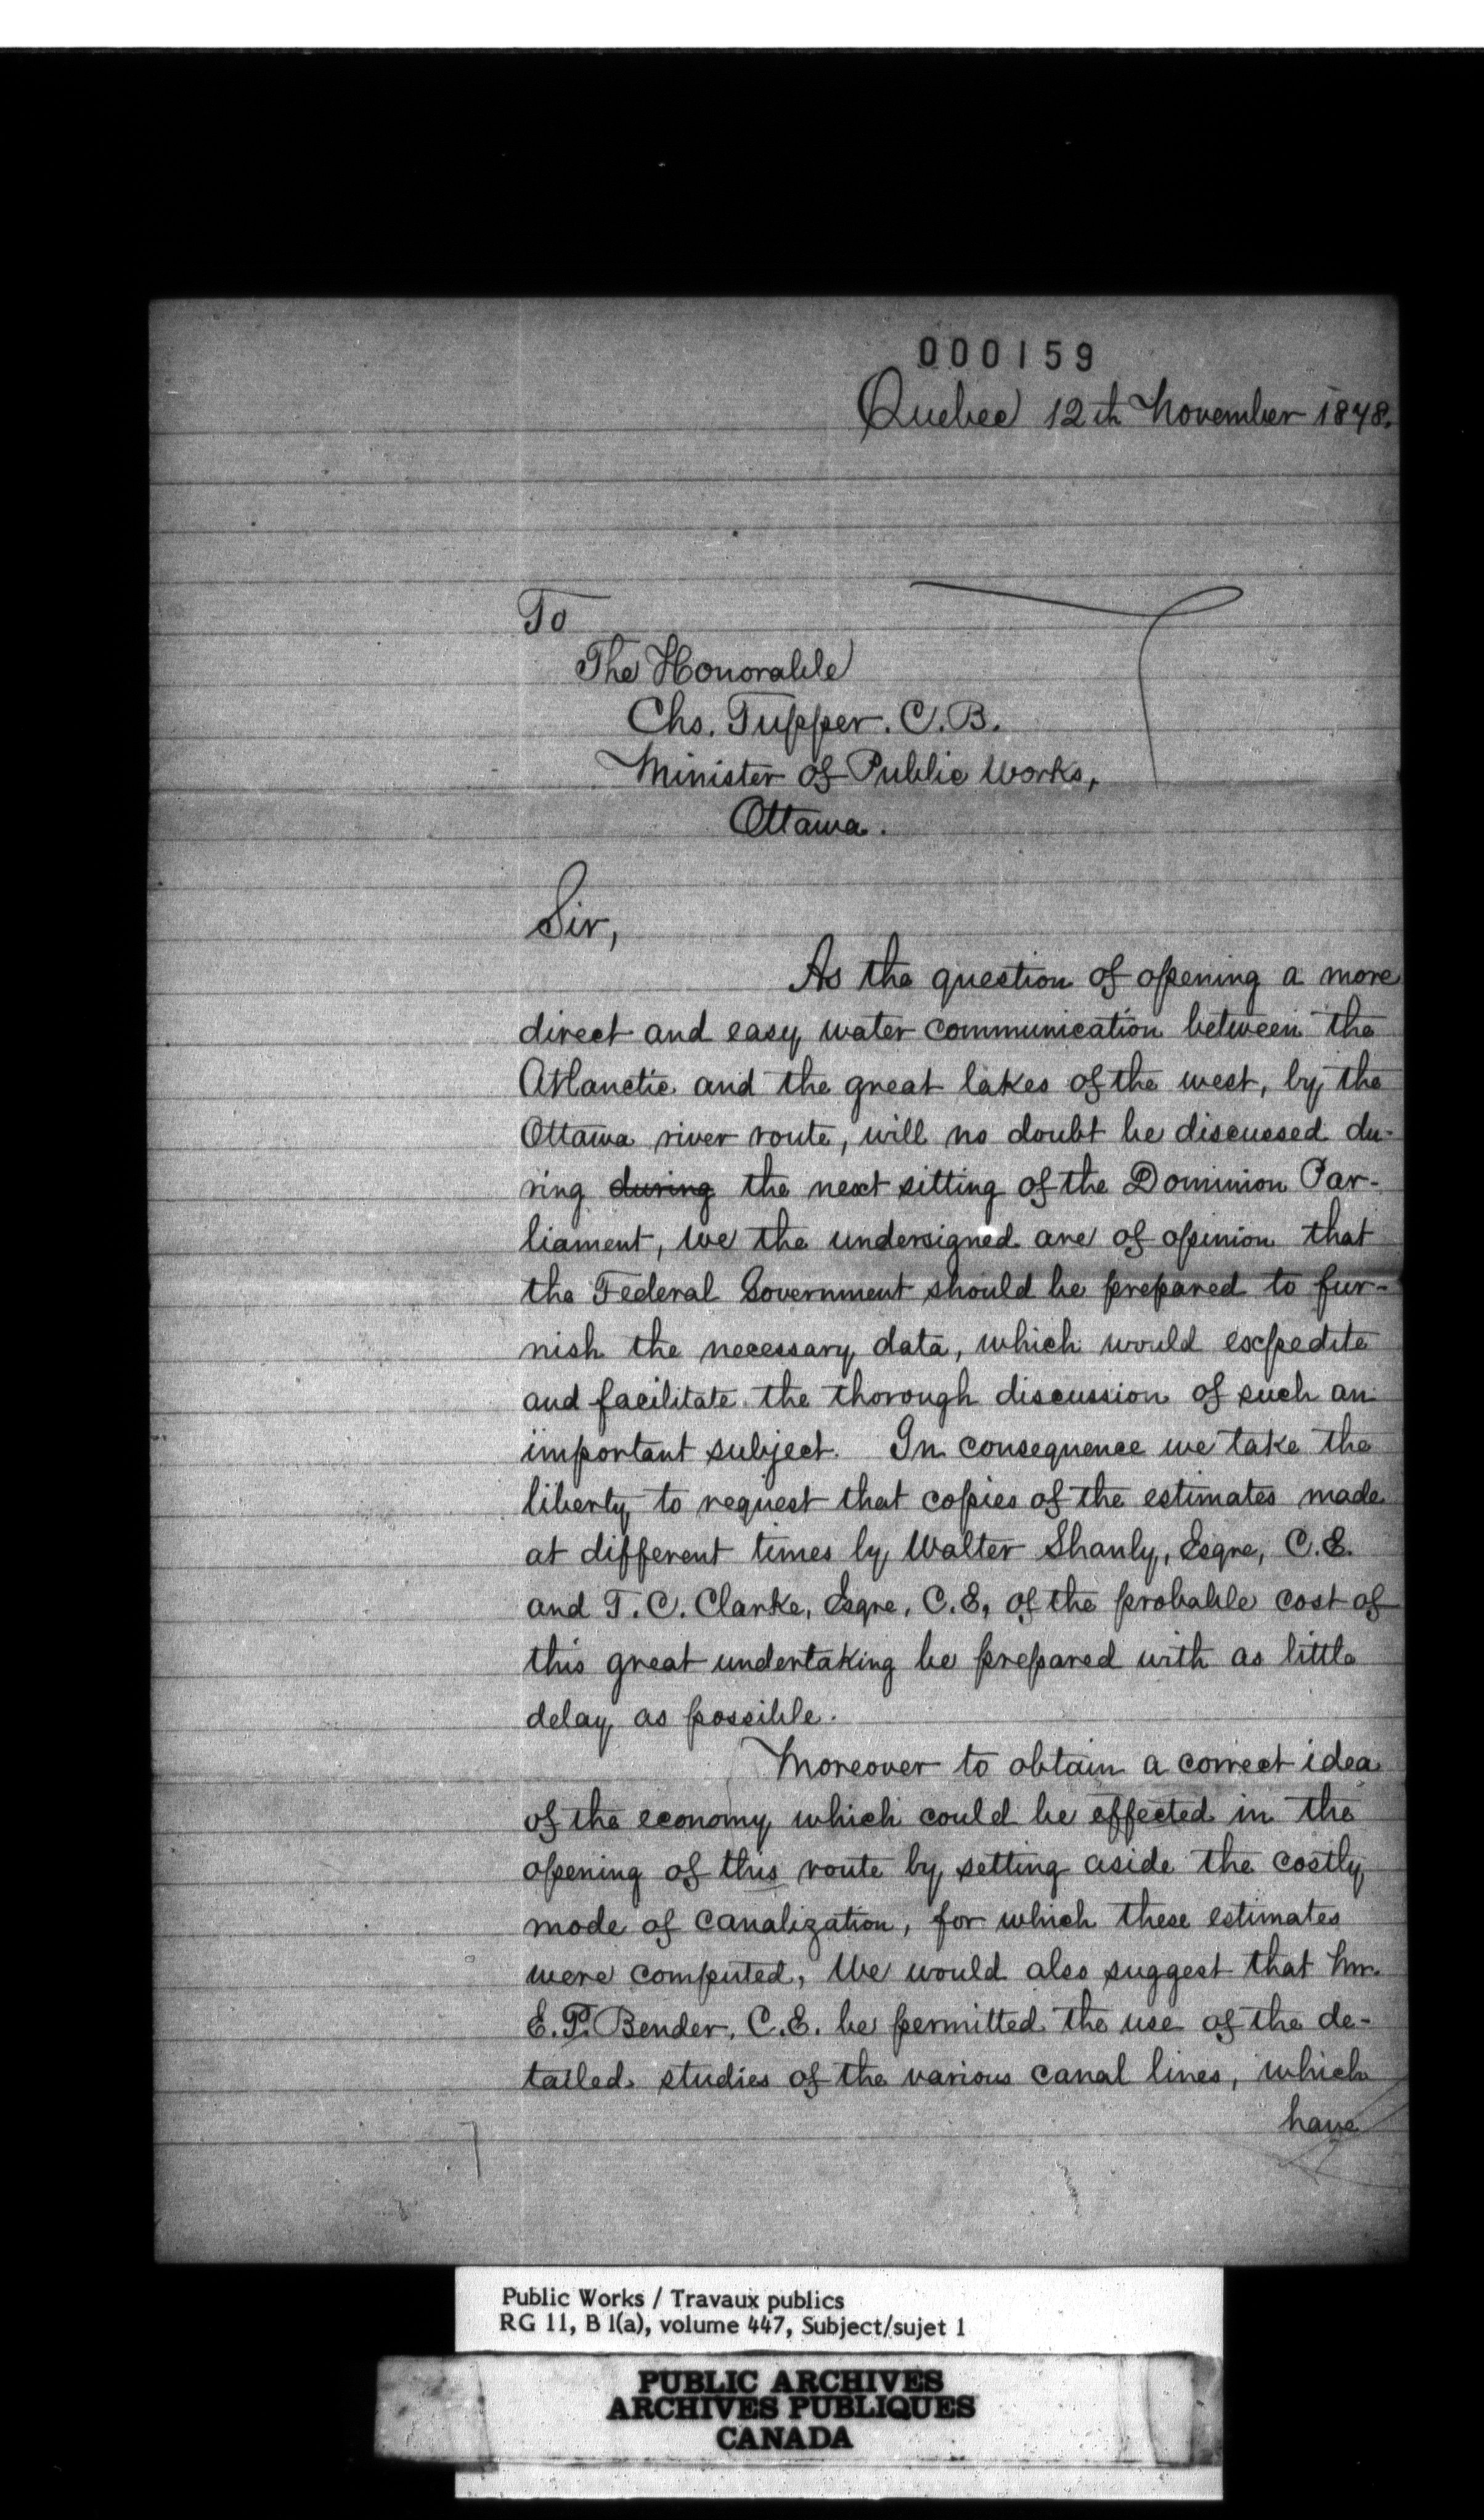 000159
Quebec 12th November 1878.
To
The Honorable
Chs. Tupper. C.B.
Minister of Public Works,
Ottawa.
Sir,
As the question of opening a more
direct and easy water communication between the
Atlanctic and the great lakes of the west, by the
Ottawa river route, will no doubt be discussed du-
ring during the next sitting of the Dominion Par-
liament, we the undersigned are of opinion that
the Federal Government should be prepared to fur-
nish the necessary data, which would expedite
and facilitate the thorough discussion of such an
important subject. In consequence we take the
liberty to request that copies of the estimates made
at different times by Walter Shanly, Esqre, C.E.
and T.C. Clarke, Esqre, C.E, of the probable cost of
this great undertaking be prepared with as little
delay as possible.
Moreover to obtain a correct idea
of the economy which could be effected in the
opening of this route by setting aside the costly
mode of canalization, for which these estimates
were computed, We would also suggest that Mr.
E.P. Bender, C.E. be permitted the use of the de-
tailed studies of the various canal lines, which
have
Public Works / Travaux publics
RG 11, B 1(a), volume 447, Subject/sujet 1
PUBLIC ARCHIVES
ARCHIVES PUBLIQUES
CANADA